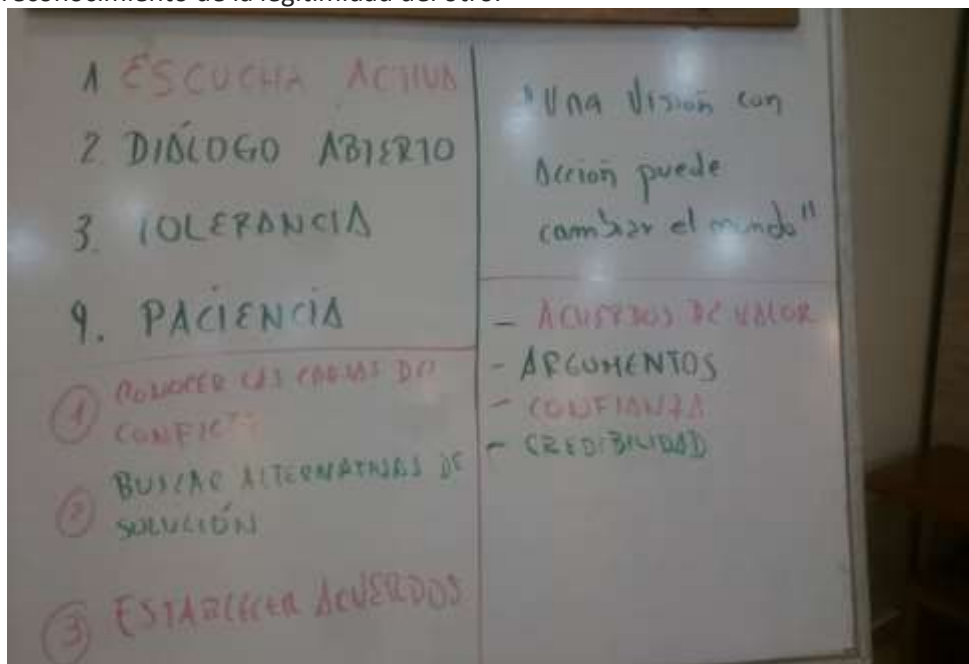 reconocimiento de la legitimidad del otro.
1 ESCUCHA ACTIVA
2. DIÁLOGO ABIERTO
3. TOLERANCIA
4. PACIENCIA
① CONOCER LAS CAUSAS DEL
CONFLICTO
② BUSCAR ALTERNATIVAS DE
SOLUCIÓN
③ ESTABLECER ACUERDOS
"Una Visión con
Acción puede
cambiar el mundo"
- ACUERDOS DE VALOR
- ARGUMENTOS
- CONFIANZA
- CREDIBILIDAD